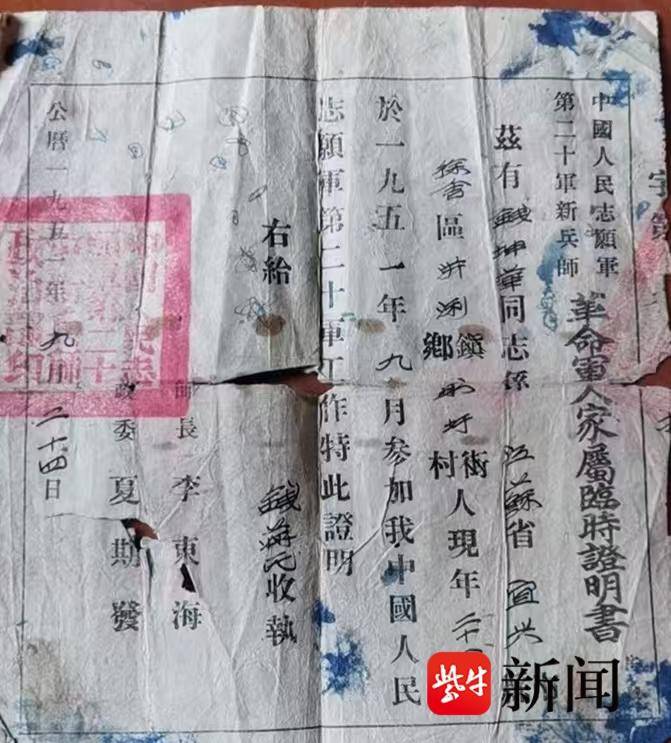 字第
中國人民志願軍
第二十軍新兵師
革命軍人家屬臨時證明書
茲有錢坤華同志係江蘇省宜興
徐舍區 鎮鄉 村街人現年二十
於一九五一年九月参加我中國人民
志願軍第二十軍工作特此證明
右給
錢 收執
師長 李東海
政委 夏期發
公曆一九五一年九月二十四日
紫牛新闻